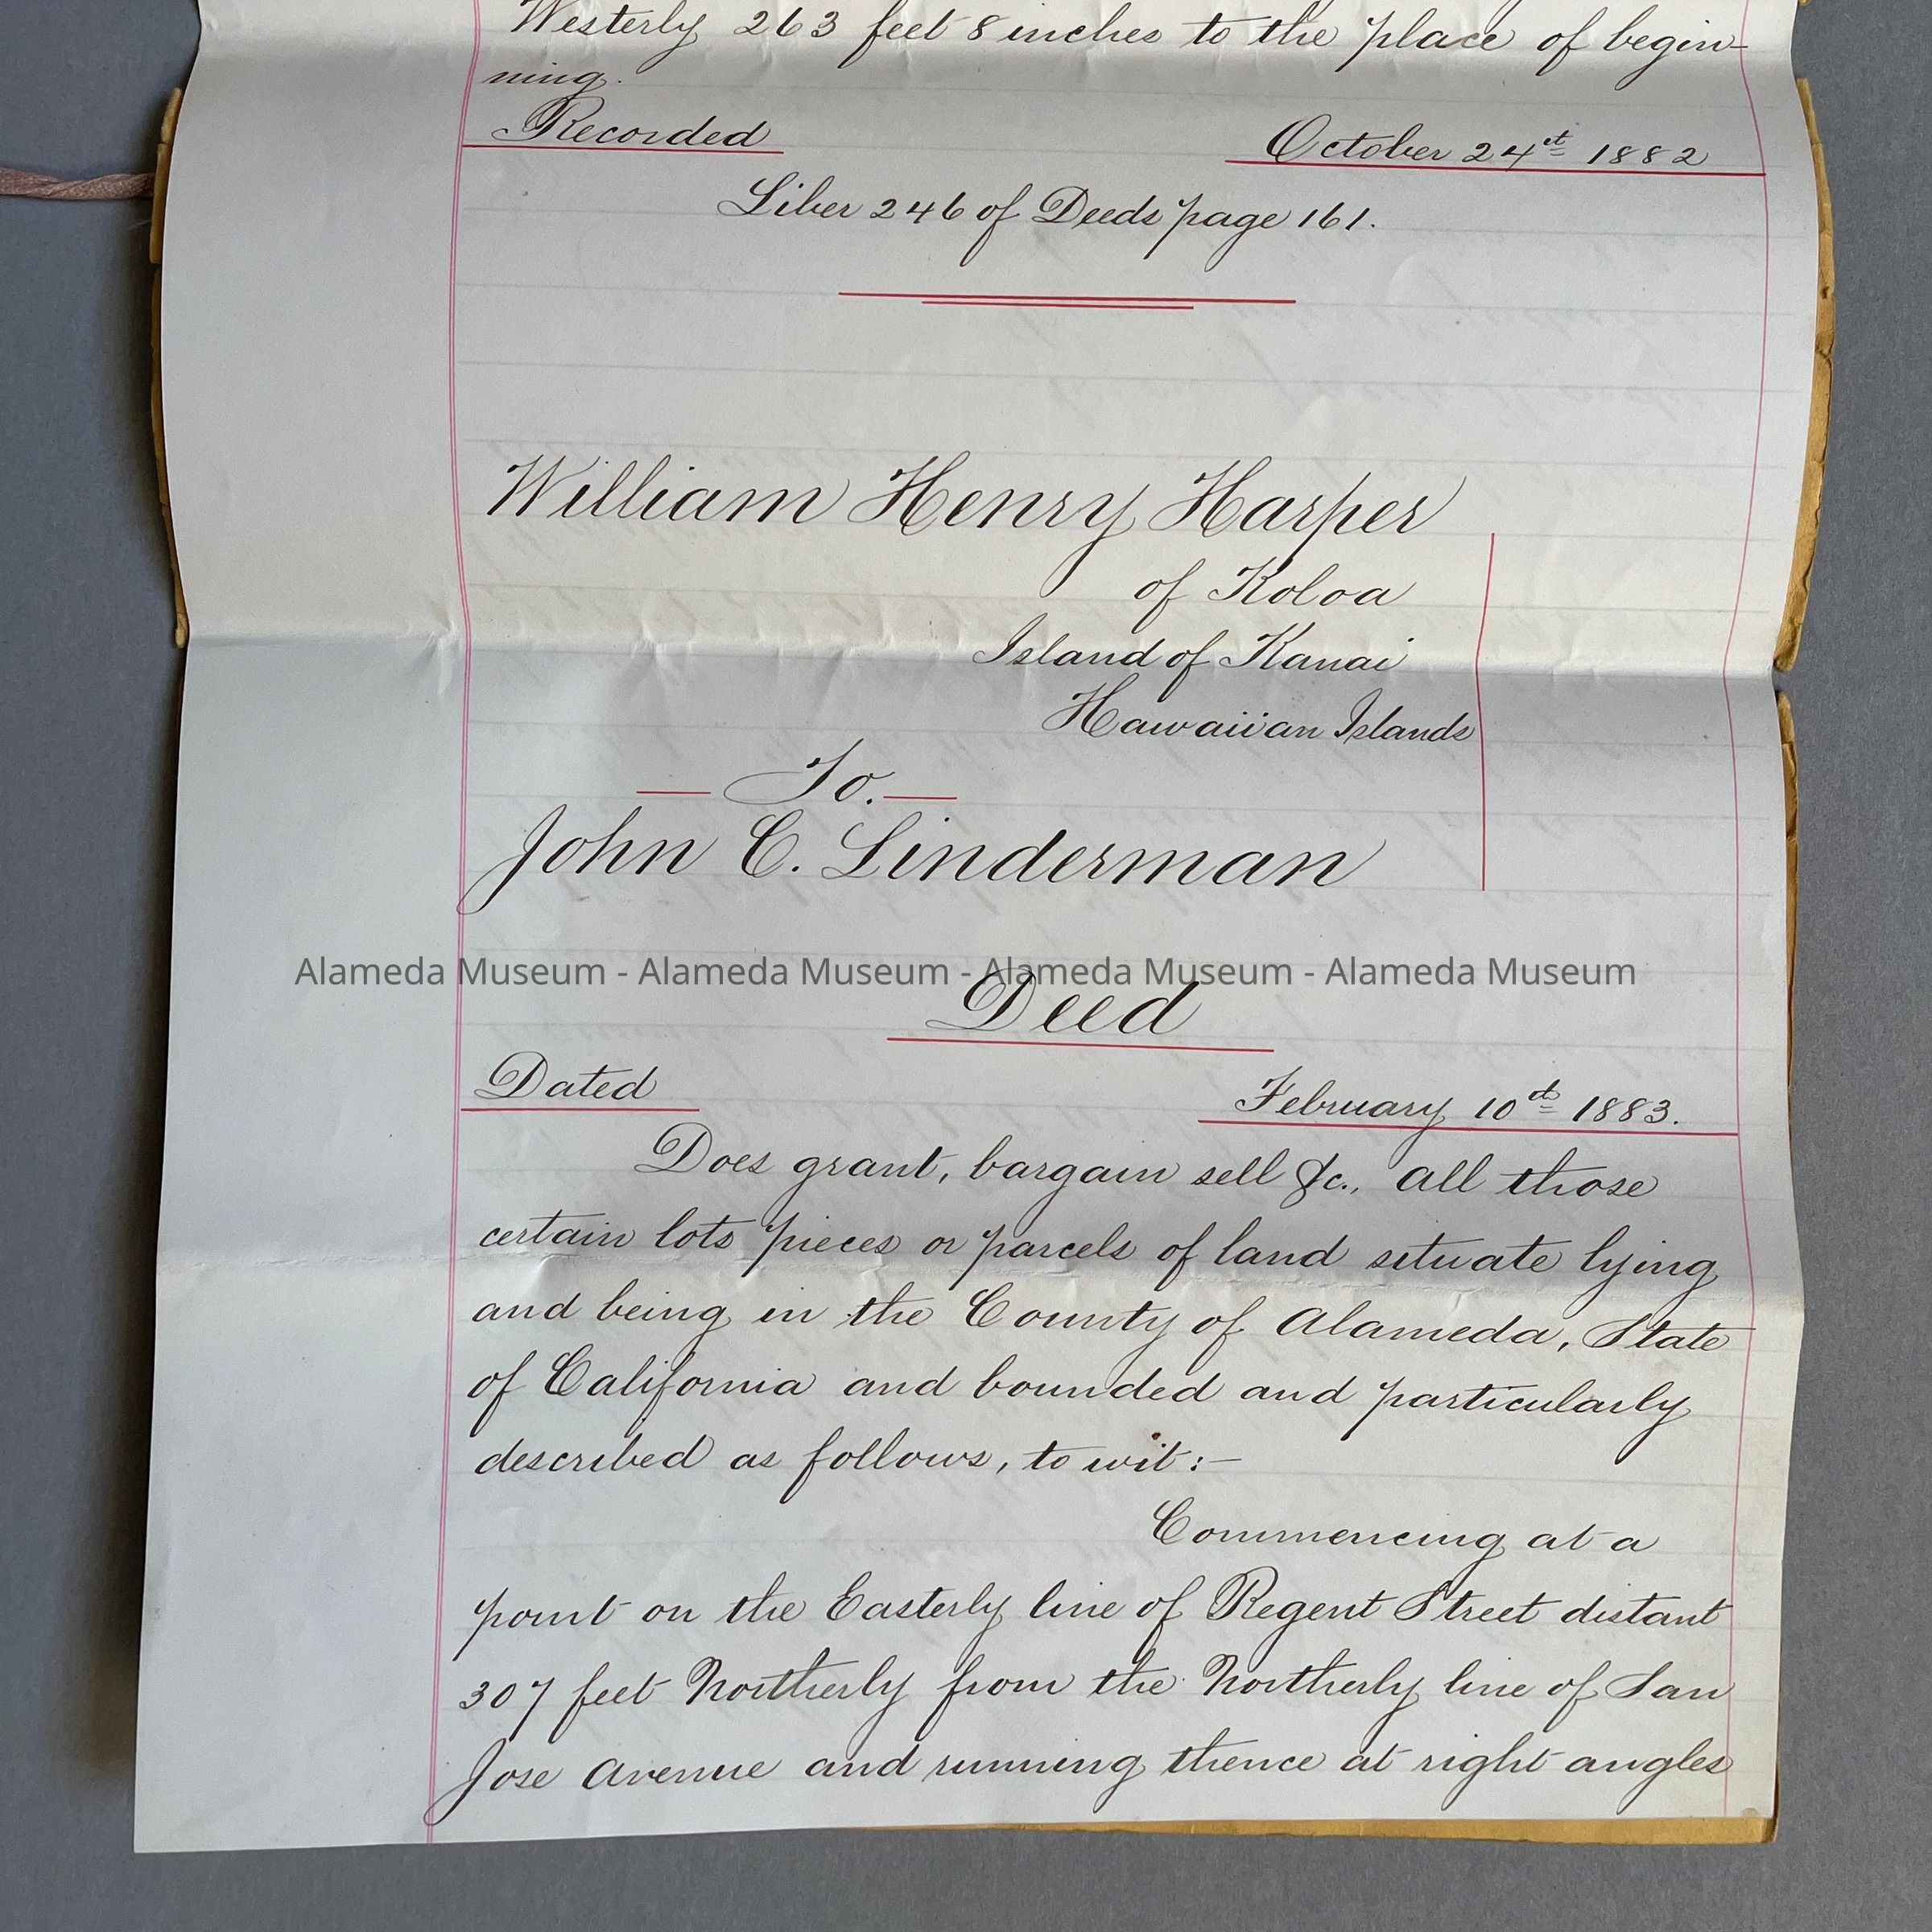 Westerly 263 feet 8 inches to the place of begin-
ning.
Recorded October 24th 1882
Liber 246 of Deeds page 161.
William Henry Harper
of Koloa
Island of Kauai
Hawaiian Islands
To.
John C. Linderman
Alameda Museum - Alameda Museum - Alameda Museum - Alameda Museum
Deed
Dated February 10th 1883.
Does grant, bargain sell &c., all those
certain lots pieces or parcels of land situate lying
and being in the County of Alameda, State
of California and bounded and particularly
described as follows, to wit:-
Commencing at a
point on the Easterly line of Regent Street distant
307 feet Northerly from the Northerly line of San
Jose Avenue and running thence at right angles